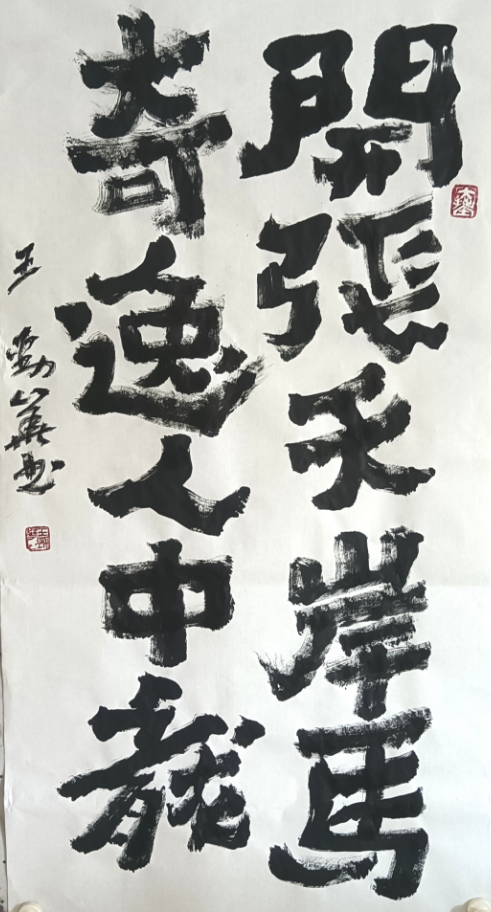 開張天岸馬
奇逸人中龍
王劲華书